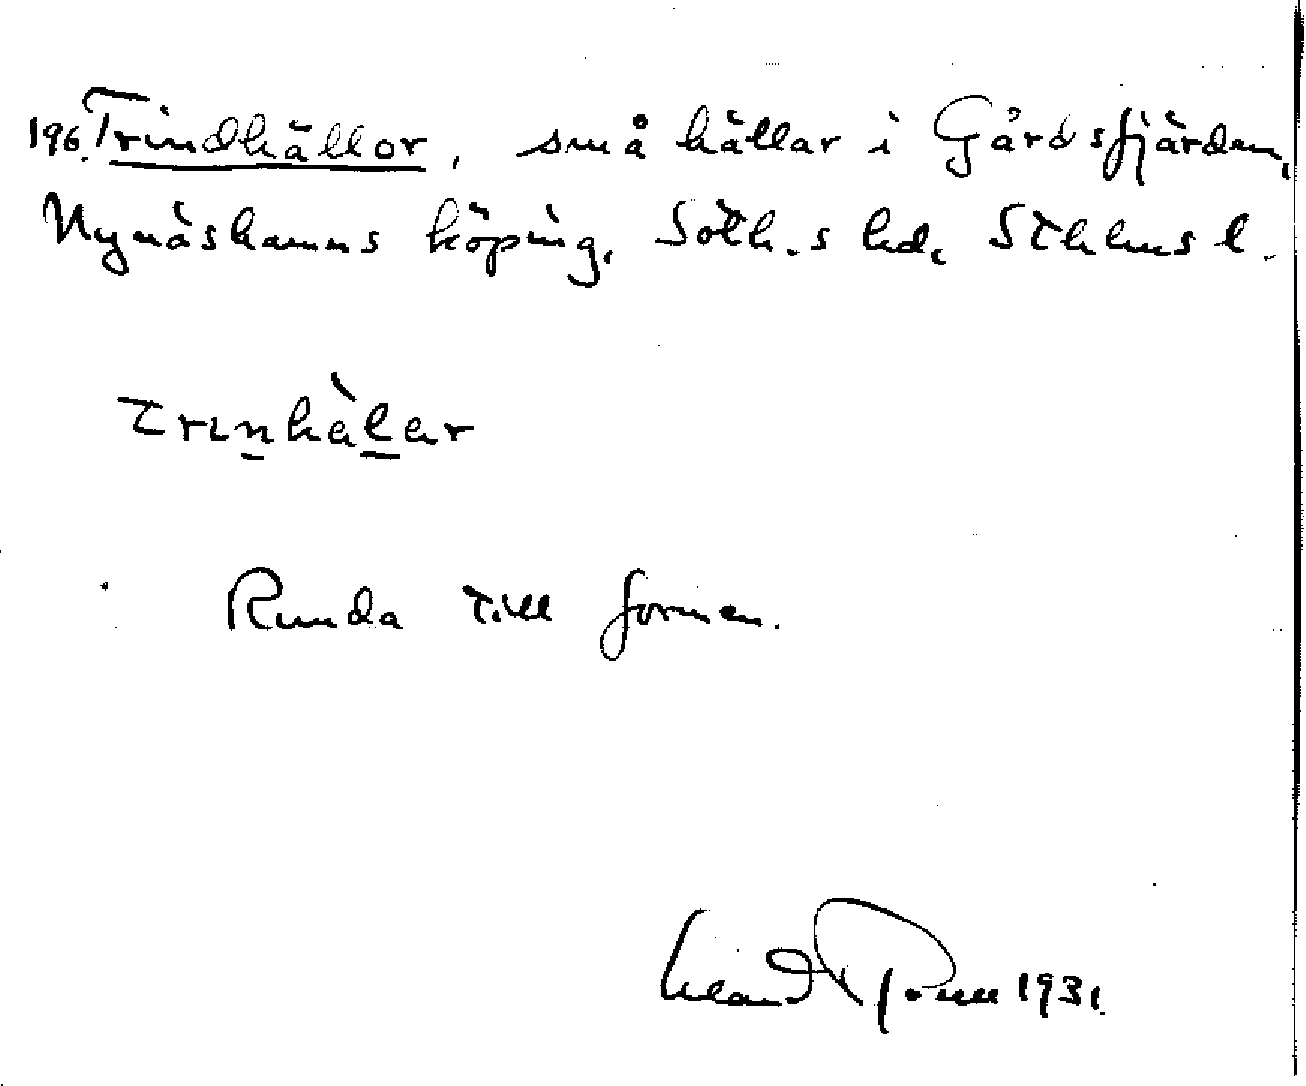 196. Trindhällor, små hällar i Gårdsfjärden,
Nynäshamns köping, Soth.s hd. Sthlms l.
trinhàlar
Runda till formen.
1931.